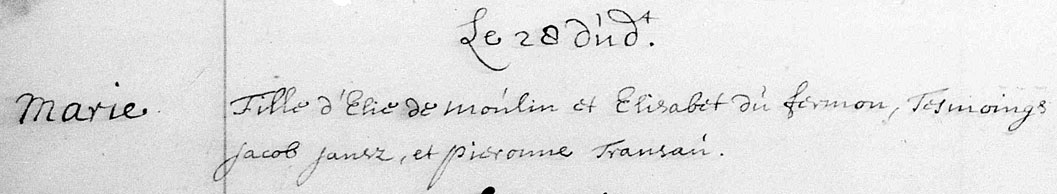 Le 28 dúd.t
Marie
Fille d'Elie de moúlin et Elizabet dú fermon, Tesmoings
jacob jansz, et pieronne Transaú.